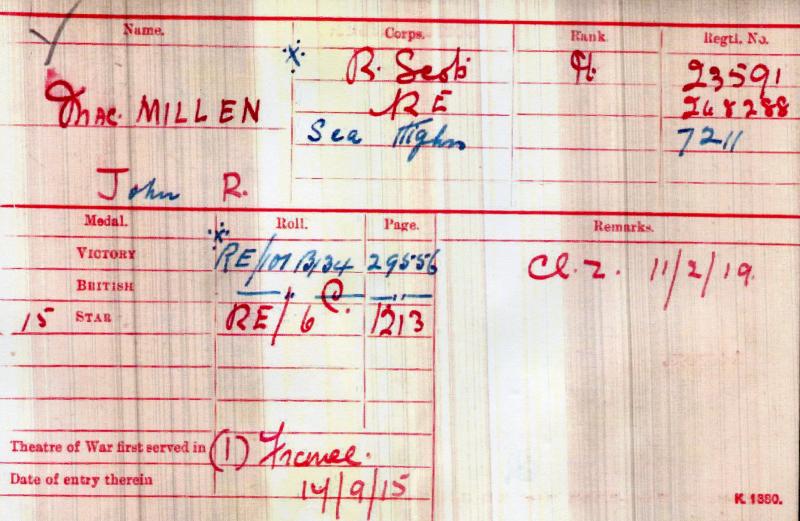 Name. Corps. Rank. Regtl. No.
R. Scots 23591
Mac. MILLEN RE 268288
Sea Highrs 7211
John R.
Medal. Roll. Page. Remarks.
VICTORY RE/101 B134 29556 Cl. Z. 11/2/19.
BRITISH — " — — " —
15 STAR RE/6 C. 1213
Theatre of War first served in (1) France.
Date of entry therein 14/9/15
K. 1380.